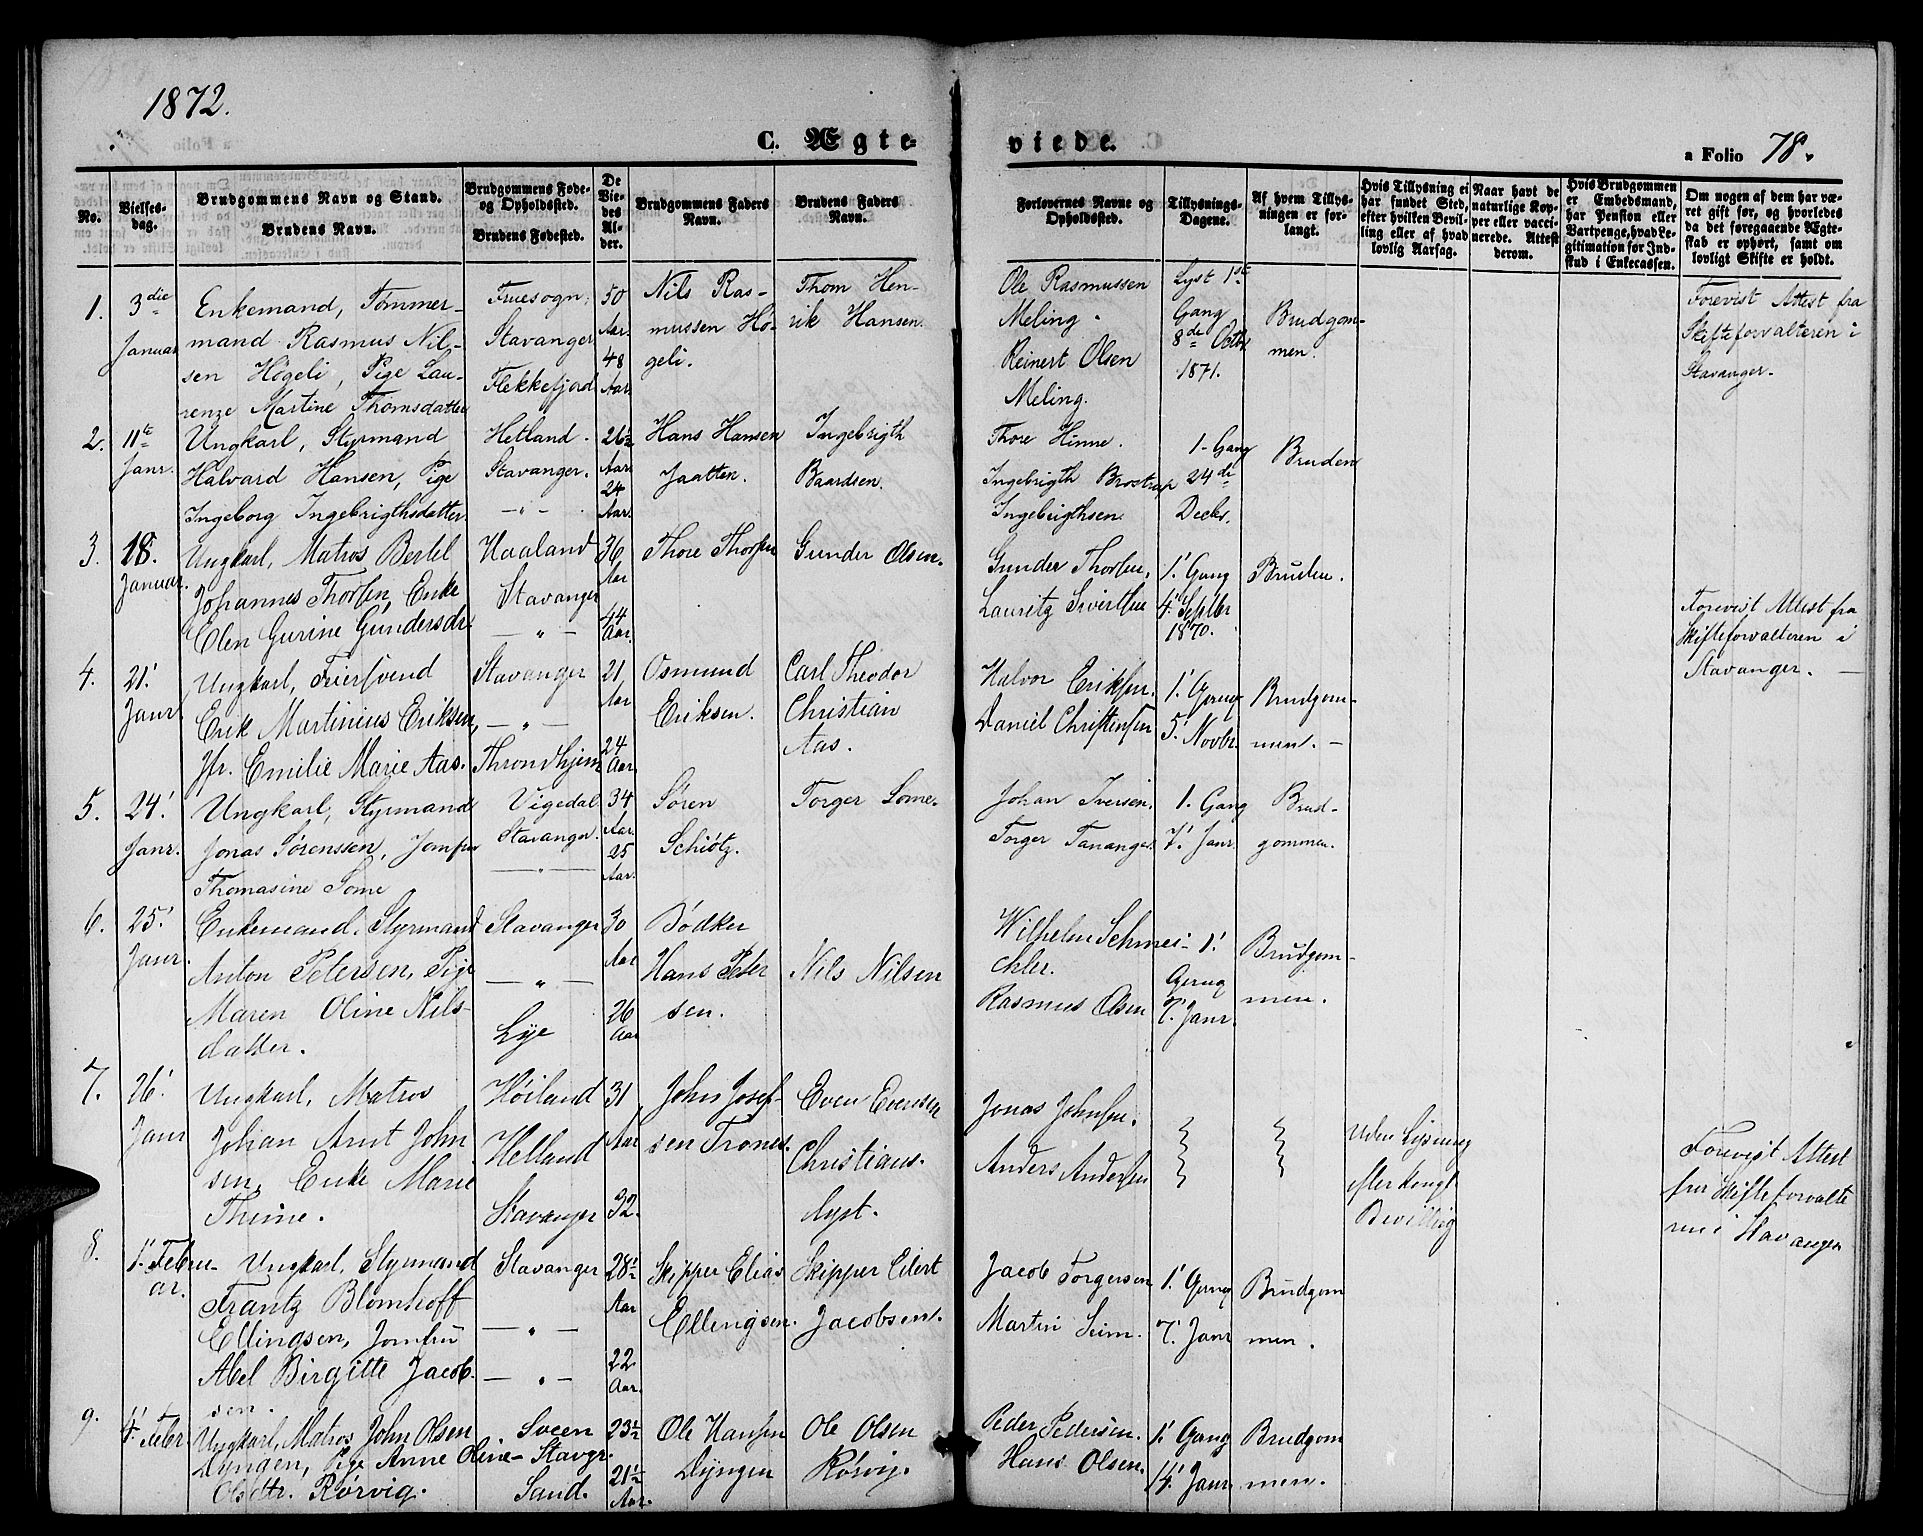 1872.
C. Ægte-
viede.
a Folio 78.
No.
Vielses-
dag.
Brudgommens Navn og Stand.
Brudens Navn.
Brudgommens Føde-
og Opholdssted.
Brudens Fødested.
De
Vie-
des
Al-
der.
Brudgommens Faders
Navn.
Brudens Faders
Navn.
Forlovernes Navne og
Opholdssted.
Tillysnings-
Dagene.
Af hvem Tillys-
ningen er for-
langt.
Hvis Tillysning ei
har fundet Sted,
efter hvilken Bevil-
ling eller af hvad
lovlig Aarsag.
Naar havt de
naturlige Kop-
per eller vacci-
nerede. Attest
derom.
Hvis Brudgommen
er Embedsmand,
har Pension eller
Vartpenge, hvad Le-
gitimation for Ind-
skud i Enkecassen.
Om nogen af dem har væ-
ret gift før, og hvorledes
da det foregaaende Ægte-
skab er ophørt, samt om
lovligt Skifte er holdt.
1.
3die
Januar
Enkemand, Tømmer-
mand Rasmus Nil-
sen Høgeli, Pige Lau-
renze Martine Thomsdatter
Fruesogn,
Stavanger
Flekkefjord
50
Aar.
48
Aar.
Nils Ras-
mussen Hø-
geli.
Thom Hen-
rik Hansen.
Ole Rasmussen
Meling.
Reinert Olsen
Meling.
Lyst 1ste
Gang
8de Octbr
1871.
Brudgom-
men.
Forevist Attest fra
Skifteforvalteren i
Stavanger.
2.
11te
Janr.
Ungkarl, Styrmand
Halvard Hansen, Pige
Ingeborg Ingebrigthsdatter.
Hetland.
Stavanger.
—"—
26½
Aar.
24
Aar.
Hans Hansen
Jaatten.
Ingebrigth
Baardsen.
Thore Hinne.
Ingebrigth Brostrup
Ingebrigthsen.
1. Gang
24de
Decbr.
Bruden
3.
18.
Januar.
Ungkarl, Matros Bertel
Johannes Thorsen, Enke
Elen Gurine Gundersdr.
Haaland
Stavanger
—"—
36
Aar
44
Aar.
Thore Thorsen
Gunder Olsen.
Gunder Thorsen,
Lauritz Sivertsen
1. Gang
4. Septbr
1870.
Bruden.
Forevist Attest fra
Skifteforvalteren i
Stavanger. —
4.
21.
Janr
Ungkarl, Feiersvend
Erik Martinius Eriksen,
Jfr. Emilie Marie Aas.
Stavanger
—"—
Throndhjem
21,
Aar
24
Aar.
Osmund
Eriksen.
Carl Theodor
Christian
Aas.
Halvor Eriksen.
Daniel Christensen
1. Gang
5. Novbr.
Brudgom-
men. —
5.
24.
Janr.
Ungkarl, Styrmand
Jonas Sørenssen, Jomfru
Thomasine Some
Vigedal
Stavanger.
—"—
34
Aar.
25
Aar.
Søren
Schiøtz.
Torger Some.
Johan Iversen.
Torger Tananger
1. Gang
7. Janr.
Brud-
gommen.
6.
25.
Janr.
Enkemand, Styrmand
Anton Petersen, Pige
Maren Oline Nils-
datter.
Stavanger
—"—
Lye
30
Aar
26
Aar
Bødker
Hans Peter
sen.
Nils Nilsen
Wilhelm Schmei-
chler.
Rasmus Olsen
1.
Gang
7. Janr.
Brudgom-
men.
7.
26.
Janr
Ungkarl, Matros
Johan Arnt John
sen, Enke Marie
Thime.
Høiland
Helland
Stavanger
31
Aar
32.
John Josef-
sen Trones.
Even Evensen
Christians-
lyst.
Jonas Johnsen.
Anders Andersen
Uden Lysning
efter Kongl
Bevilling
Forevist Attest
fra Skifteforvalte
ren i Stavanger
8.
1. Febru-
ar.
Ungkarl, Styrmand
Frantz Blomhoff
Ellingsen, Jomfru
Abel Birgitte Jacob-
sen.
Stavanger
—"—
—"—
28½
Aar
22
Aar.
Skipper Elias
Ellingsen.
Skipper Eilert
Jacobsen.
Jacob Torgersen
Martin Seim.
1. Gang
7. Janr
Brudgom
men.
9.
4. Febr
Ungkarl, Matros John Olsen
Dyngen, Pige Anne Oline
Olsdtr. Rørvig.
Sveen
Stavgr.
Sand.
23½
21½
Aar.
Ole Hansen
Dyngen
Ole Olsen
Rørvig.
Peder Pedersen.
Hans Olsen.
1. Gang
14. Janr.
Brudgom
men.